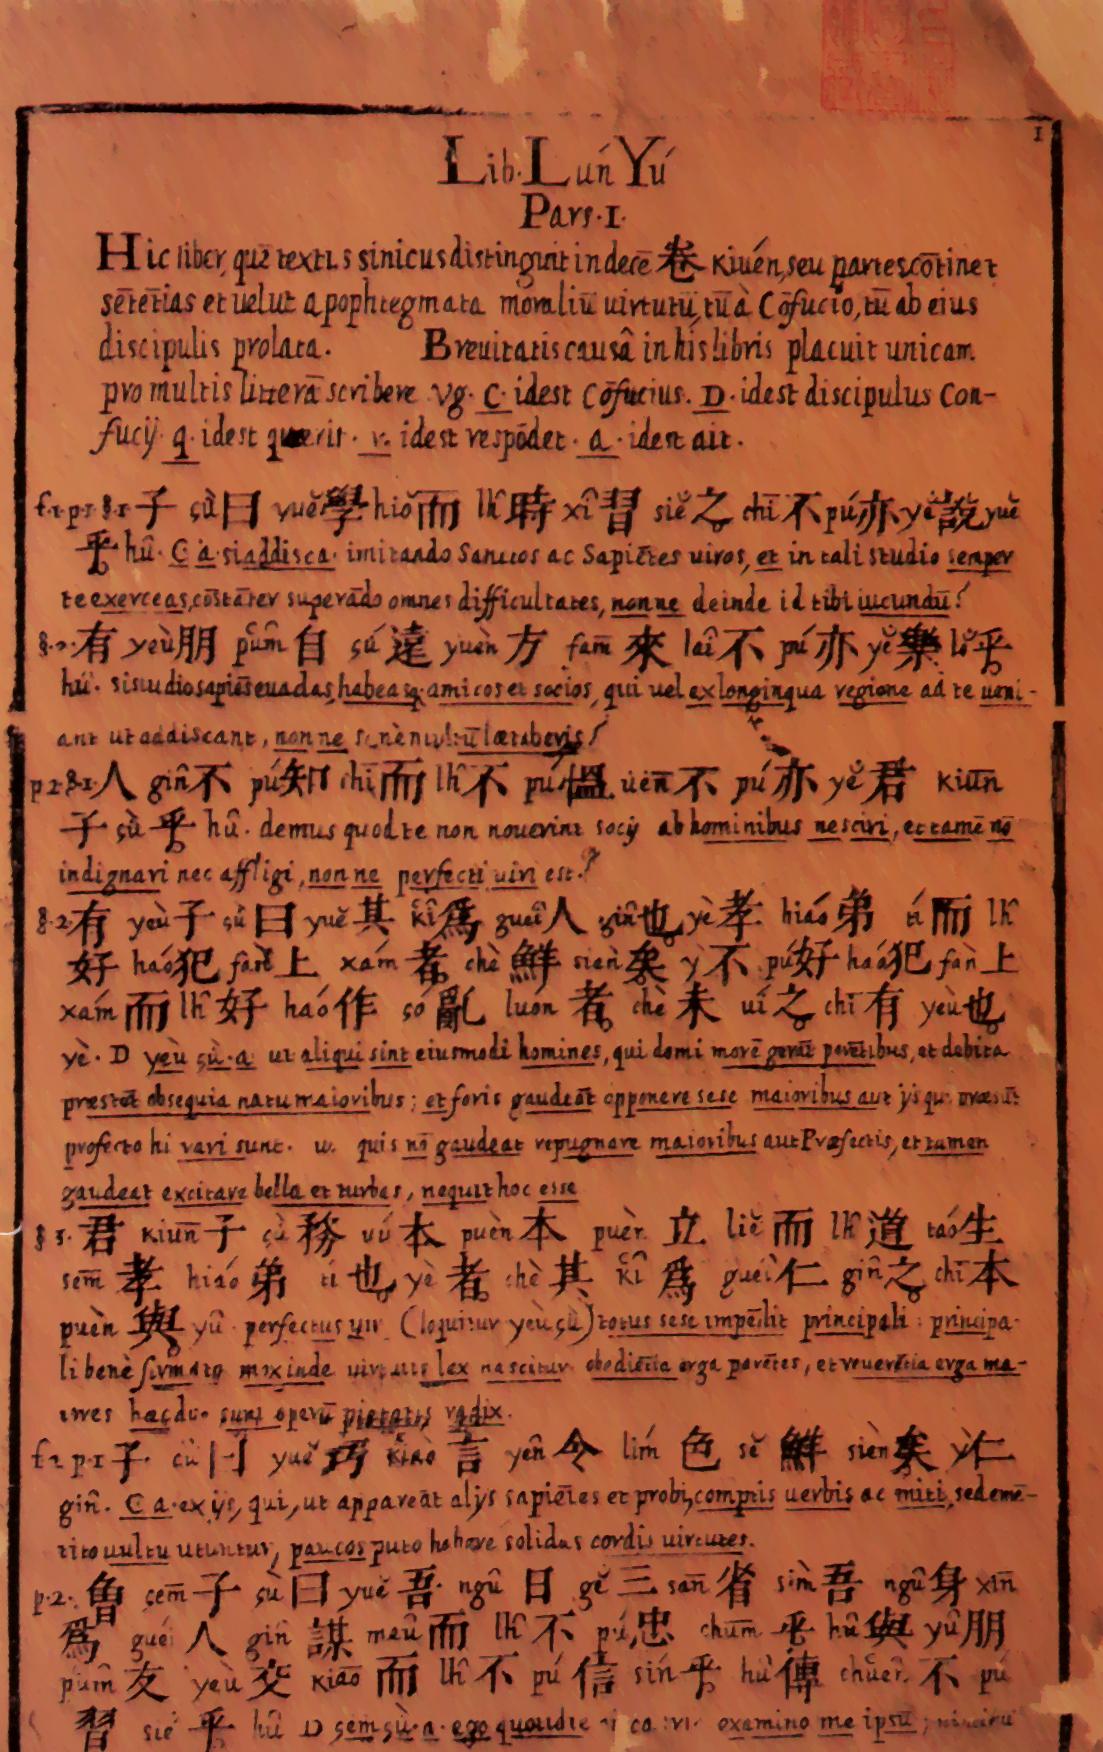 1
Lib. Lún Yú
Pars. 1.
Hic liber, quē textus sinicus distinguit in decē 卷 kiuén, seu partes cōtinet
sētētias et uelut apophtegmata moraliū uirtutū, tū à Cōfucio, tū ab eius
discipulis prolata. Breuitatis causâ in hís libris placuit unicam
pro multis litterā scribere Vg. C. idest Cōfucius. D. idest discipulus Con-
fucij q. idest quærit. r. idest respōdet. a. idest ait.
f.1. p.1. §.1 子 çù 曰 yuĕ 學 hiŏ 而 lĥ 時 xî 習 siĕ 之 chī 不 pú 亦 yĕ 說 yuĕ
乎 hû. C a. si addisca. imitando Sanctos ac Sapiētes uiros, et in tali studio semper
te exerceas, cōstāter superādo omnes difficultates, nonne deinde id tibi iucundū?
§.2. 有 yeù 朋 pûm 自 çú 遠 yuèn 方 fam̄ 來 laî 不 pú 亦 yĕ 樂 lŏ 乎
hû. si studio sapiēs euadas, habeasq. amicos et socios, qui uel ex longinqua regione ad te ueni-
ant ut addiscant, nonne lætaberis?
p.2. §.1. 人 gin̂ 不 pú 知 chī 而 lĥ 不 pú 慍 úen̄ 不 pú 亦 yĕ 君 kiun̄
子 çù 乎 hû. demus quod te non nouerint socij ab hominibus nesciri, et tamē nō
indignari nec affligi, nonne perfecti uiri est?
§.2. 有 yeù 子 çù 曰 yuĕ 其 kî 爲 gueî 人 gin̂ 也 yè 孝 hiáo 弟 tí 而 lĥ
好 háo 犯 fàn 上 xám 者 chè 鮮 sièn 矣 ỳ 不 pú 好 háo 犯 fàn 上
xám 而 lĥ 好 háo 作 çó 亂 luon 者 chè 未 uí 之 chī 有 yeù 也
yè. D yeù çù. a. ut aliqui sint eiusmodi homines, qui domi morē gerāt parētibus, et debita
præstēt obsequia natu maioribus; et foris gaudeāt opponere sese maioribus aut ijs qui præsūt
profecto hi rari sunt. quis nō gaudeat repugnare maioribus aut Præfectis, et tamen
gaudeat excitare bella et turbas, nequit hoc esse
§ 3. 君 kiun̄ 子 çù 務 uú 本 puèn 本 puèn 立 liĕ 而 lĥ 道 taó 生
sem̄ 孝 hiáo 弟 tí 也 yè 者 chè 其 kî 爲 gueî 仁 gin̂ 之 chī 本
puèn 與 yû perfectus uir (loquitur yeù çù) totus sese impēdit principali: principa-
li benè firmato mox inde uirtutis lex nascitur obediētia erga parētes, et reuerētia erga ma-
iores hæc duo sunt operū pietatis radix.
f.2 p.1 子 çù 曰 yuĕ 巧 kiào 言 yên 令 lím 色 sĕ 鮮 sièn 矣 ỳ 仁
gin̂. C a. ex ijs, qui, ut appareāt alijs sapiētes et probi, comptis uerbis ac miti, sed emē-
tito uultu utuntur, paucos puto habere solidas cordis uirtutes.
p.2. 曾 çem̄ 子 çù 曰 yuĕ 吾 ngû 日 gĕ 三 san̄ 省 sìm 吾 ngû 身 xin̄
爲 guéi 人 gin̂ 謀 meû 而 lĥ 不 pú 忠 chum̄ 乎 hû 與 yû 朋
pûm 友 yeù 交 kiao 而 lĥ 不 pú 信 sín 乎 hû 傳 chuên 不 pú
習 siĕ 乎 hû D çem çù. a. ego quotidie examino me ipsū